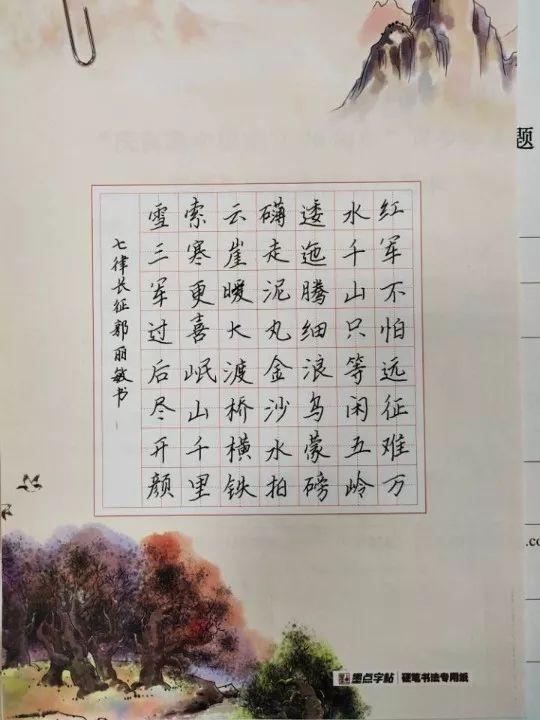 红军不怕远征难万
水千山只等闲五岭
逶迤腾细浪乌蒙磅
礴走泥丸金沙水拍
云崖暖大渡桥横铁
索寒更喜岷山千里
雪三军过后尽开颜
七律长征郭丽敏书
题
.co
墨点字帖 硬笔书法专用纸